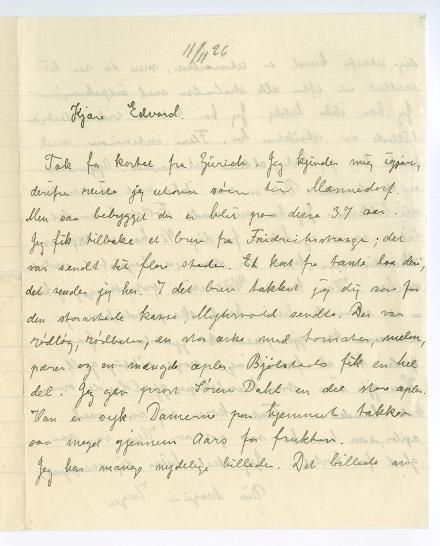 11/11 26
Kjære Edvard.
Tak for kortet fra Zürich. Jeg kjender mig igjen,
derfra reiste jeg utover søen til Männedorf.
Men saa bebygget der er blit paa disse 37 aar.
Jeg fik tilbake et brev fra Friedrichstrasse; det
var sendt til flere steder. Et kort fra tante laa deri,
det sender jeg her. I det brev takket jeg dig saa for
den storartede kasse Myhrvold sendte. Der var
rødløg, rødbeter, en stor æske med tomater, melon,
pærer og en mængde æpler. Bjölstads fik en hel
del. Jeg gav provst Søren Dahl en del store æpler.
Han er syk. Damerne paa hjemmet takker
saa meget gjennem Aars for frukten.
Jeg har mange nydelige billeder. Det billede av